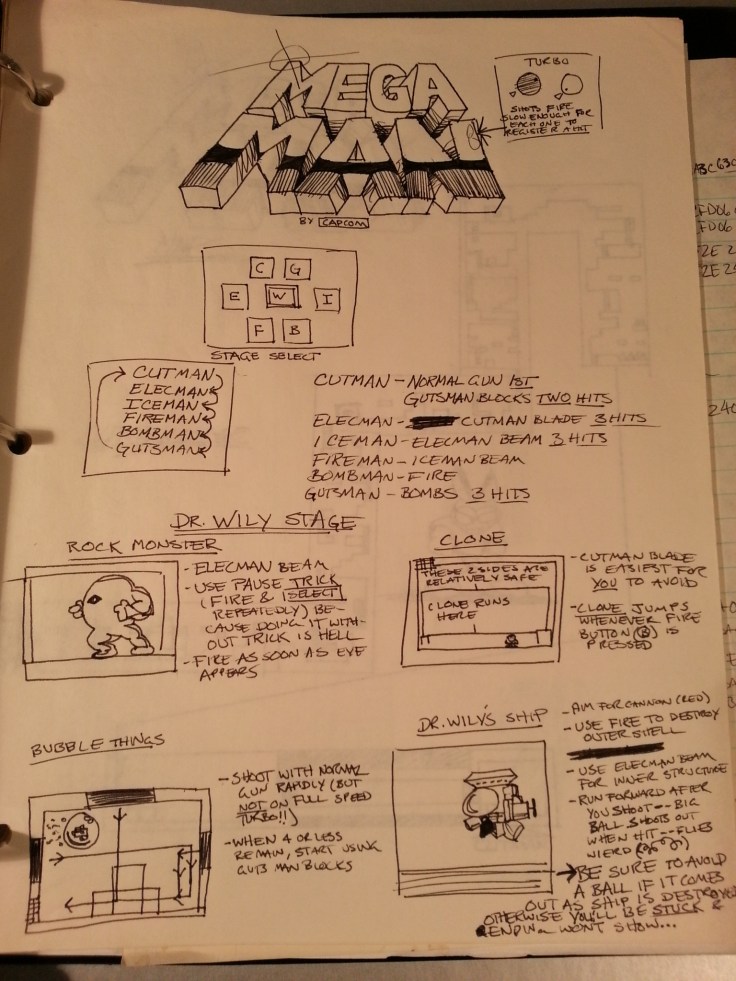 MEGA
MAN
BY CAPCOM
TURBO
SHOTS FIRE
SLOW ENOUGH FOR
EACH ONE TO
REGISTER A HIT
C G
E W I
F B
STAGE SELECT
CUTMAN
ELECMAN
ICEMAN
FIREMAN
BOMBMAN
GUTSMAN
CUTMAN - NORMAL GUN 1ST
GUTSMAN BLOCKS TWO HITS
ELECMAN - CUTMAN BLADE 3 HITS
ICEMAN - ELECMAN BEAM 3 HITS
FIREMAN - ICEMAN BEAM
BOMBMAN - FIRE
GUTSMAN - BOMBS 3 HITS
DR. WILY STAGE
ROCK MONSTER
- ELECMAN BEAM
- USE PAUSE TRICK
(FIRE & SELECT
REPEATEDLY) BE-
CAUSE DOING IT WITH-
OUT TRICK IS HELL
- FIRE AS SOON AS EYE
APPEARS
CLONE
THESE 2 SIDES ARE
RELATIVELY SAFE
CLONE RUNS
HERE
- CUTMAN BLADE
IS EASIEST FOR
YOU TO AVOID
- CLONE JUMPS
WHENEVER FIRE
BUTTON (B) IS
PRESSED
BUBBLE THINGS
- SHOOT WITH NORMAL
GUN RAPIDLY (BUT
NOT ON FULL SPEED
TURBO!!)
- WHEN 4 OR LESS
REMAIN, START USING
GUTSMAN BLOCKS
DR. WILY'S SHIP
- AIM FOR CANNON (RED)
- USE FIRE TO DESTROY
OUTER SHELL
- USE ELECMAN BEAM
FOR INNER STRUCTURE
- RUN FORWARD AFTER
YOU SHOOT -- BIG
BALL SHOOTS OUT
WHEN HIT -- FLIES
WIERD
BE SURE TO AVOID
A BALL IF IT COMES
OUT AS SHIP IS DESTROYED
OTHERWISE YOU'LL BE STUCK &
ENDING WON'T SHOW...